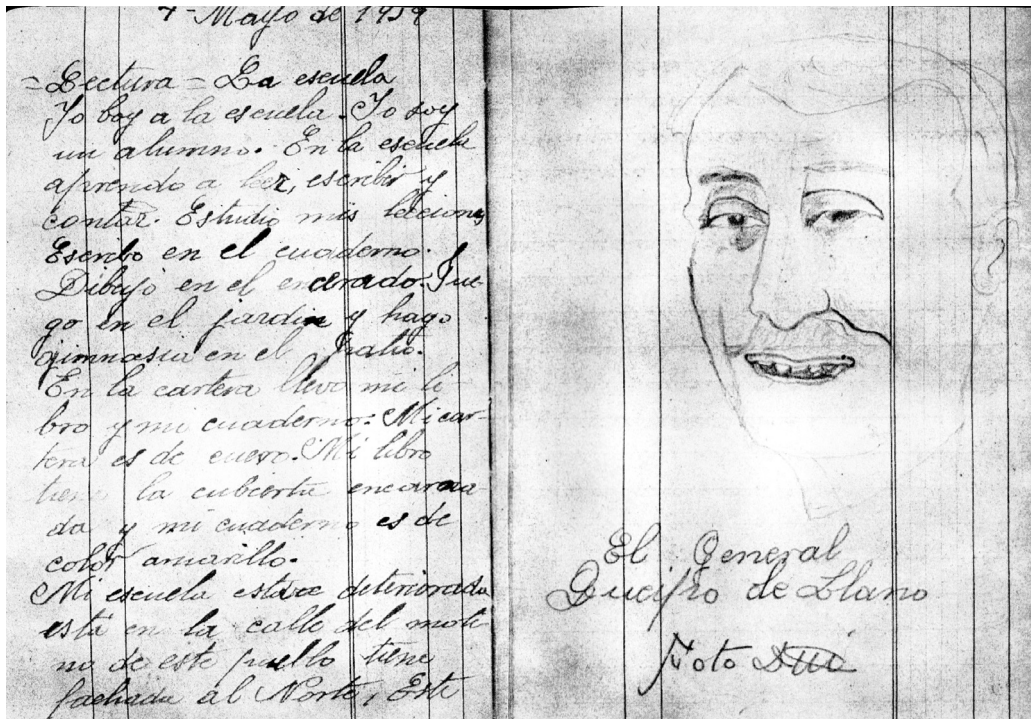 7 - Mayo de 1939
= Lectura = La escuela
Yo boy a la escuela. Yo soy
un alumno. En la escuela
aprendo a leer, escribir y
contar. Estudio mis lecciones
Escribo en el cuaderno.
Dibujo en el encerado. Jue-
go en el jardin y hago
gimnasia en el patio.
En la cartera llevo mi li-
bro y mi cuaderno: Mi car-
tera es de cuero. Mi libro
tiene la cubierta encarna-
da y mi cuaderno es de
color amarillo.
Mi escuela
está en la calle del moli
no de este pueblo tiene
fachada al Norte, Este
El General
Queipo de Llano
Foto